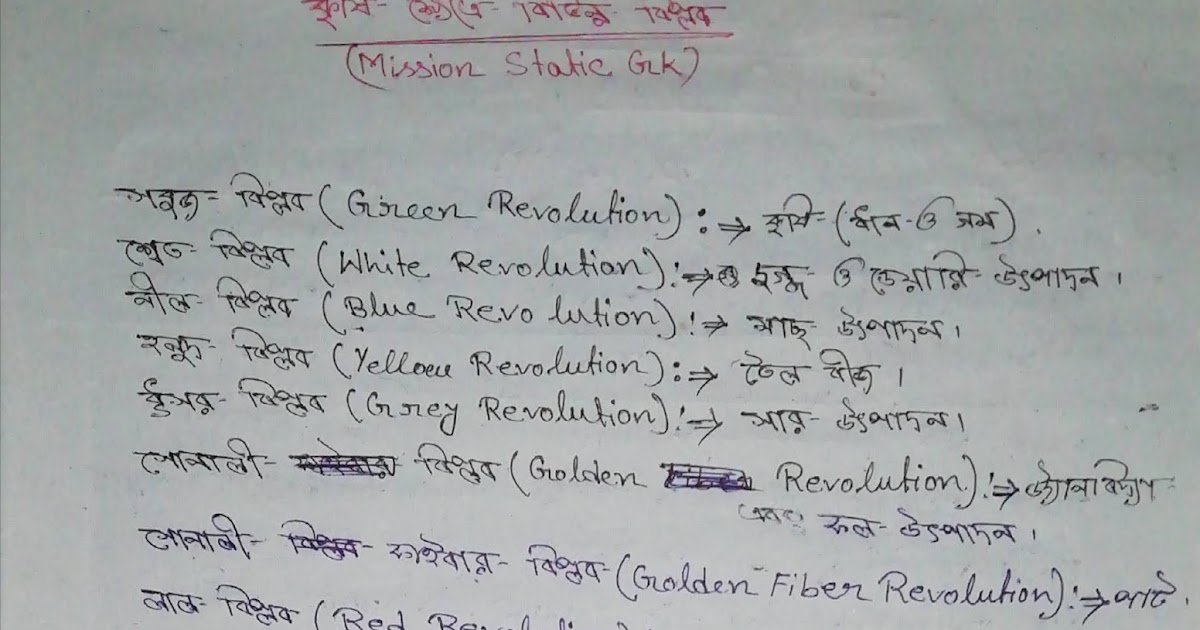 কৃষি- ক্ষেত্রে- বিভিন্ন- বিপ্লব
(Mission Static Gk)
সবুজ- বিপ্লব (Green Revolution) :⇒ কৃষি- (ধান- ও গম) .
শ্বেত- বিপ্লব (White Revolution) :⇒ দুগ্ধ- ও ডেয়ারি- উৎপাদন।
নীল- বিপ্লব (Blue Revolution) :⇒ মাছ- উৎপাদন।
হলুদ- বিপ্লব (Yellow Revolution) :⇒ তৈল বীজ।
ধুসর- বিপ্লব (Grey Revolution) :⇒ সার- উৎপাদন।
সোনালী- বিপ্লব (Golden Revolution) :⇒ উদ্যানবিদ্যা
এবং ফল- উৎপাদন।
সোনালী- ফাইবার- বিপ্লব- (Golden Fiber Revolution) :⇒ পাট.
লাল- বিপ্লব (Red Revolution)